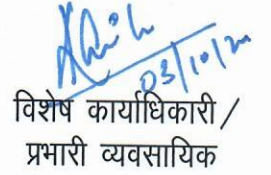 03/10/20
विशेष कार्याधिकारी /
प्रभारी व्यवसायिक